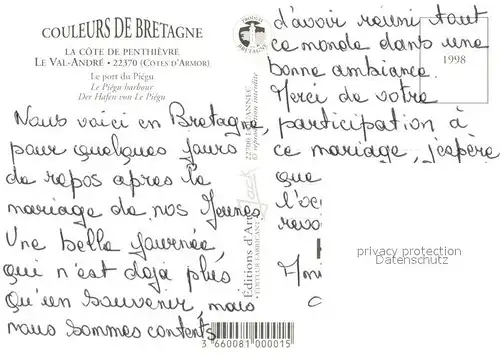 COULEURS DE BRETAGNE
LA CÔTE DE PENTHIÈVRE
LE VAL-ANDRÉ • 22370 (CÔTES D'ARMOR)
Le port du Piégu
Le Piégu harbour
Der Hafen von Le Piégu
Nous voici en Bretagne,
pour quelques jours
de repos apres le
mariage de nos Jeunes
Une belle journée
qui n'est deja plus
qu'un souvenir, mais
nous sommes contents
d'avoir réuni tout
ce monde dans une
bonne ambiance.
Merci de votre
participation à
ce mariage, j'espère
que
l'oc
revo
Ami
PRODUIT
BRETAGNE
Editions d'Art Jack
EDITEUR FABRICANT
reproduction interdite
1998
privacy protection
Datenschutz
3 660081 000015